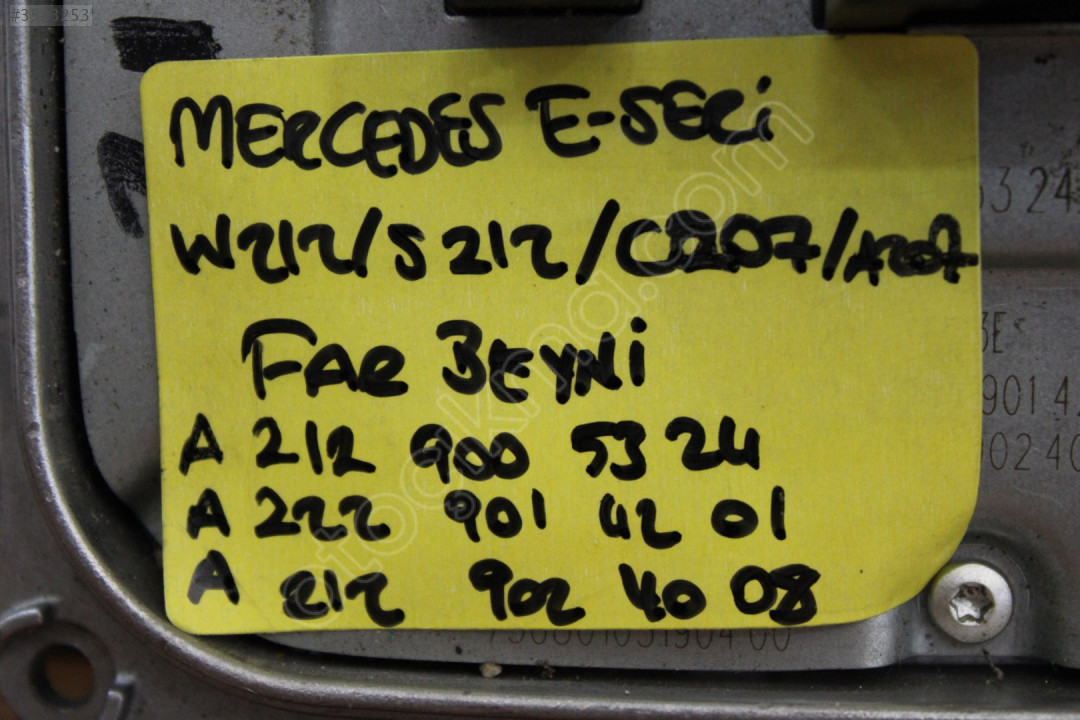 MERCEDES E-SERİ
W212/S212/C207/A207
FAR BEYNİ
A 212 900 53 24
A 222 901 42 01
A 212 902 40 08
53 24
901 4
02 40
otocikma.com